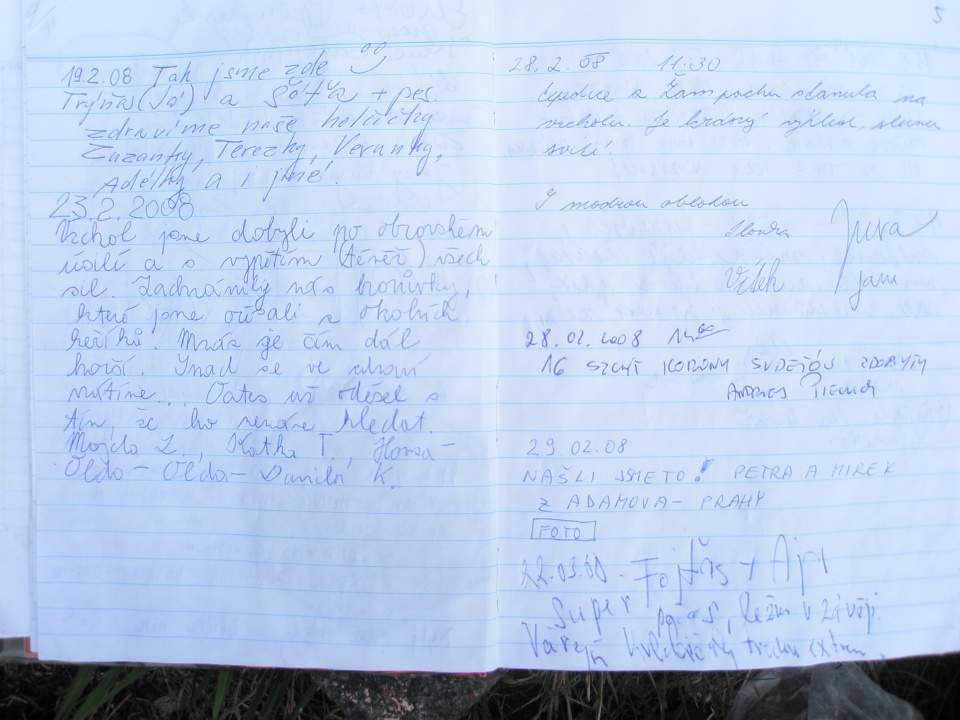 5
19.2.08 Tak jsme zde
Trýňa (Já) a Šóťa + pes.
zdravíme naše holčičky
Zuzanky, Terezky, Verunky,
Adélky a i jiné.
23.2.2008
Vrchol jsme dobyli po obrovském
úsilí a s vypětím (téměř) všech
sil. Zachránily nás borůvky,
které jsme z okolních
keříků. Mráz je čím dál
horší. Snad se ve zdraví
vrátíme... Oates už odešel s
tím, že ho nemáme hledat.
Majda Z., Katka T., Honza-
Olda - Olda - Danila K.
28.2.08 11:30
Expedice z Žampachu stanula na
vrcholu. Je krásný výhled, slunce
svítí.
I modrou oblohou
Jura
Jana
28.02.2008 14
16 SZCZYT KORONY SUDETÓW ZDOBYTY
29.02.08
NAŠLI JSME TO! PETRA A MIREK
Z ADAMOVA - PRAHY
FOTO
Fojtás + Ajri
Super počas, ležím v závěji.
extrem.